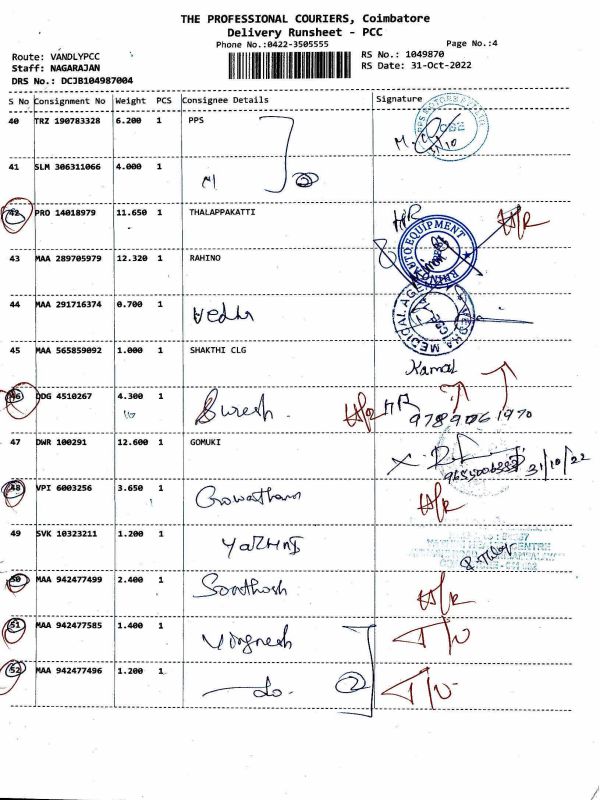 THE PROFESSIONAL COURIERS, Coimbatore
Delivery Runsheet - PCC
Phone No.:0422-3505555
Page No.:4
Route: VANDLYPCC
RS No.: 1049870
Staff: NAGARAJAN
RS Date: 31-Oct-2022
DRS No.: DCJB104987004
S No Consignment No Weight PCS Consignee Details Signature
40 TRZ 190783328 6.200 1 PPS
41 SLM 306311066 4.000 1
42 PRO 14018979 11.650 1 THALAPPAKATTI H/R
43 MAA 289705979 12.320 1 RAHINO
AUTO EQUIPMENT
44 MAA 291716374 0.700 1 Vedha
VEDHA MEDICAL AGE
45 MAA 565859092 1.000 1 SHAKTHI CLG
Kamal
46 DDG 4510267 4.300 1 Suresh. H/R 9789061970
47 DWR 100291 12.600 1 GOMUKI
31/10/22
48 VPI 6003256 3.650 1 Gowatham H/R
49 SVK 10323211 1.200 1 Yazhini
50 MAA 942477499 2.400 1 Santhosh H/R
51 MAA 942477585 1.400 1 Vignesh
52 MAA 942477496 1.200 1 do. 2